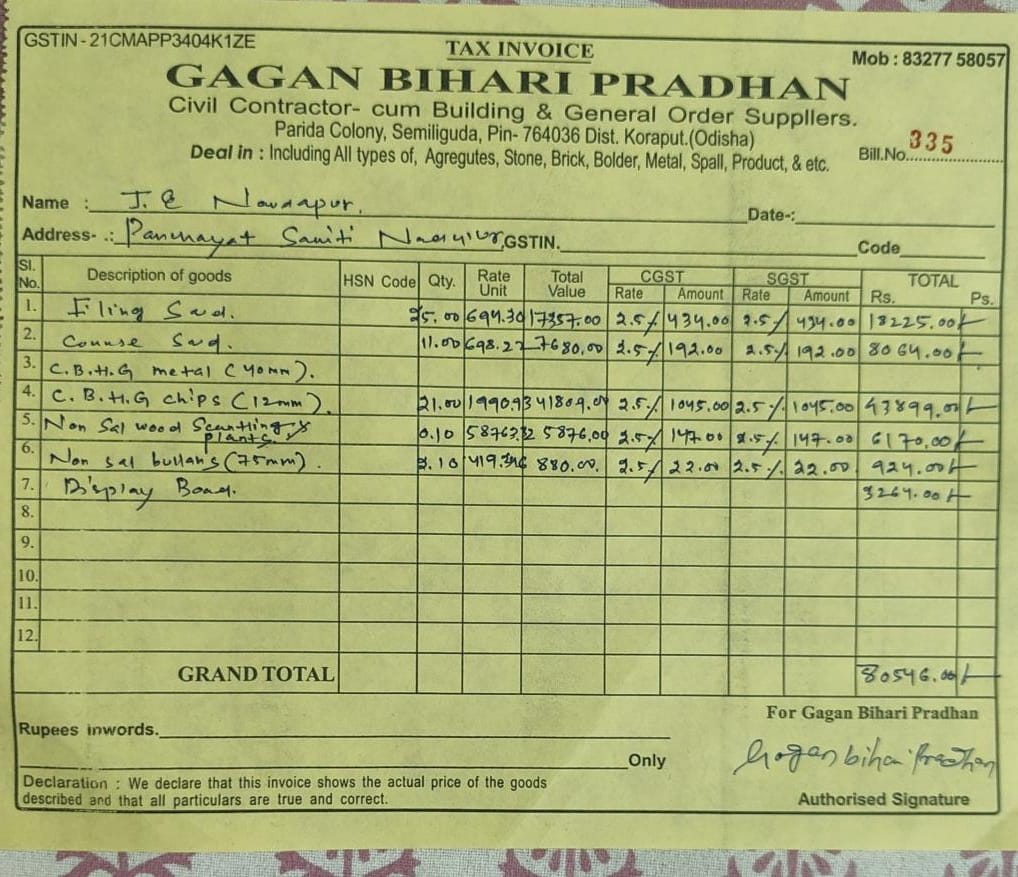 GSTIN - 21CMAPP3404K1ZE
TAX INVOICE
Mob : 83277 58057
GAGAN BIHARI PRADHAN
Civil Contractor- cum Building & General Order Suppliers.
Parida Colony, Semiliguda, Pin- 764036 Dist. Koraput.(Odisha)
Deal in : Including All types of, Agregutes, Stone, Brick, Bolder, Metal, Spall, Product, & etc.
Bill.No. 335
Name : J. E
Date-:
Address- .: Panchayat Samiti GSTIN. Code
Sl. No. Description of goods HSN Code Qty. Rate Unit Total Value CGST Rate Amount SGST Rate Amount TOTAL Rs. Ps.
1. Filing Sad. 25.00 694.30 17357.00 2.5% 434.00 2.5% 434.00 18225.00
2. Sad. 11.00 698.27 7680.00 2.5% 192.00 2.5% 192.00 8064.00
3. C.B.H.G metal (40mm).
4. C.B.H.G chips (12mm). 21.00 41809.00 2.5% 1045.00 2.5% 1045.00 43899.00
5. Non Sal wood Scantling & plants. 0.10 5876.00 2.5% 147.00 2.5% 147.00 6170.00
6. Non sal bullahs (75mm). 2.10 880.00. 2.5% 22.00 2.5% 22.00 924.00
7. Display Board. 3264.00
8.
9.
10.
11.
12.
GRAND TOTAL 80546.00
For Gagan Bihari Pradhan
Rupees inwords.
Only
Gagan bihari Pradhan
Declaration : We declare that this invoice shows the actual price of the goods
described and that all particulars are true and correct.
Authorised Signature